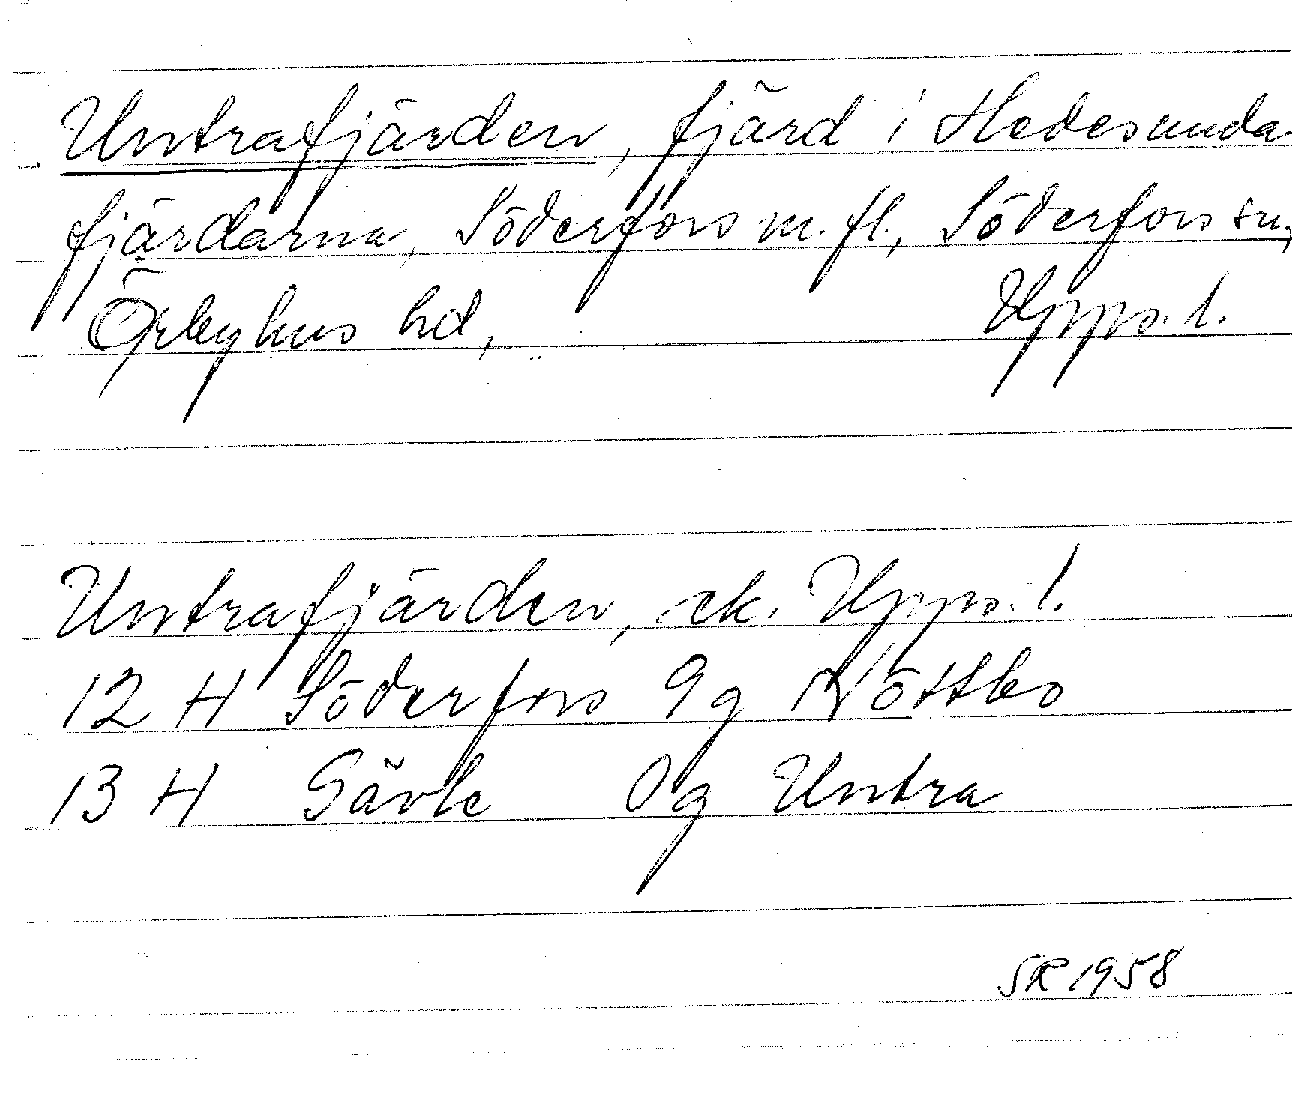 Untrafjärden, fjärd i Hedesunda-
fjärdarna, Söderfors m.fl., Söderfors sn,
Örbyhus hd, Upps. l.
Untrafjärden, ek. Upps. l.
12 H Söderfors 9g Nöttbo
13 H Gävle 0g Untra
SR 1958